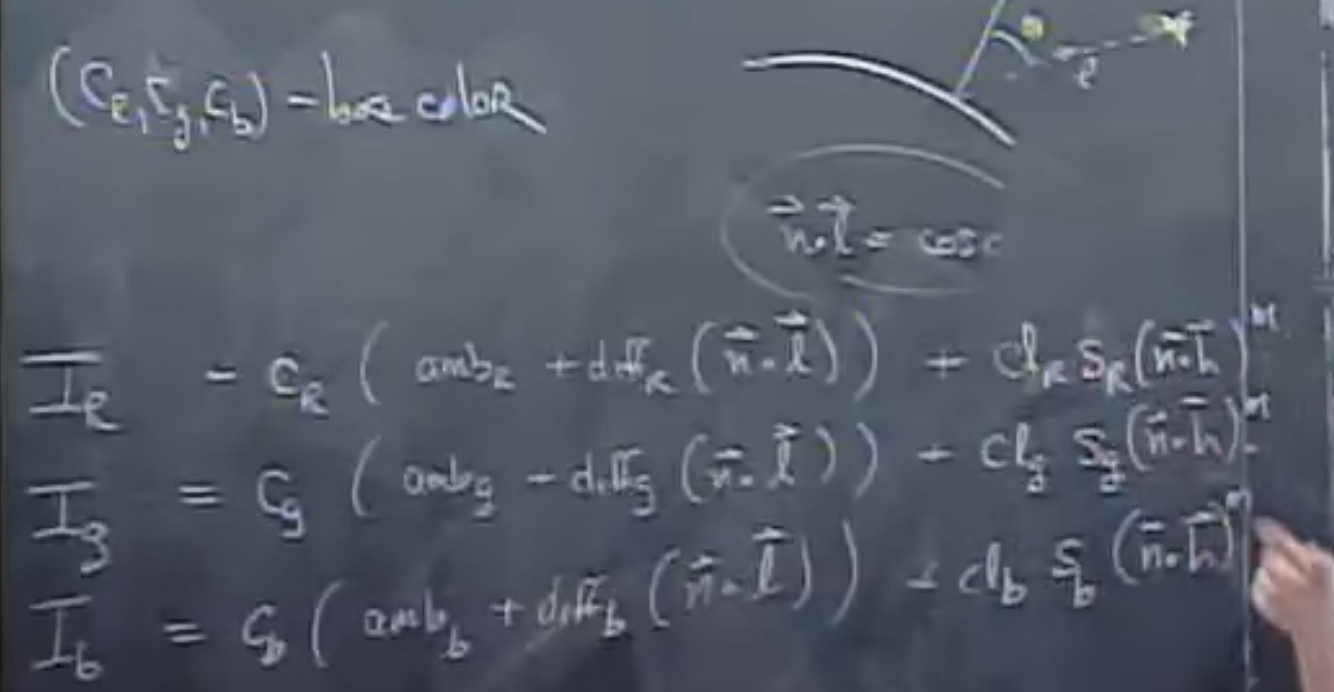 (C_R, C_g, C_b) - base color
θ
l
n⃗·l⃗ = cos
I_R = C_R ( amb_R + diff_R (n⃗·l⃗)) + cl_R S_R (n⃗·h⃗)^n
I_g = C_g ( amb_g + diff_g (n⃗·l⃗)) + cl_g S_g (n⃗·h⃗)^n
I_b = C_b ( amb_b + diff_b (n⃗·l⃗)) + cl_b S_b (n⃗·h⃗)^n